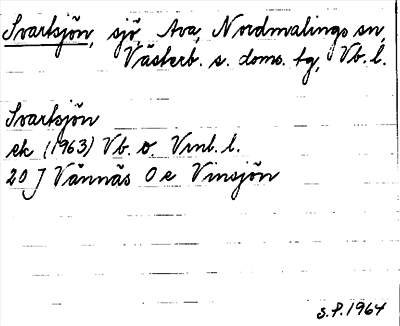 Svartsjön, sjö, Ava, Nordmalings sn,
Västerb. s. doms. tg, Vb. l.
Svartsjön
ek (1963) Vb. o. Vrnb. l.
20 J Vännäs O e Vinsjön
S.P. 1964